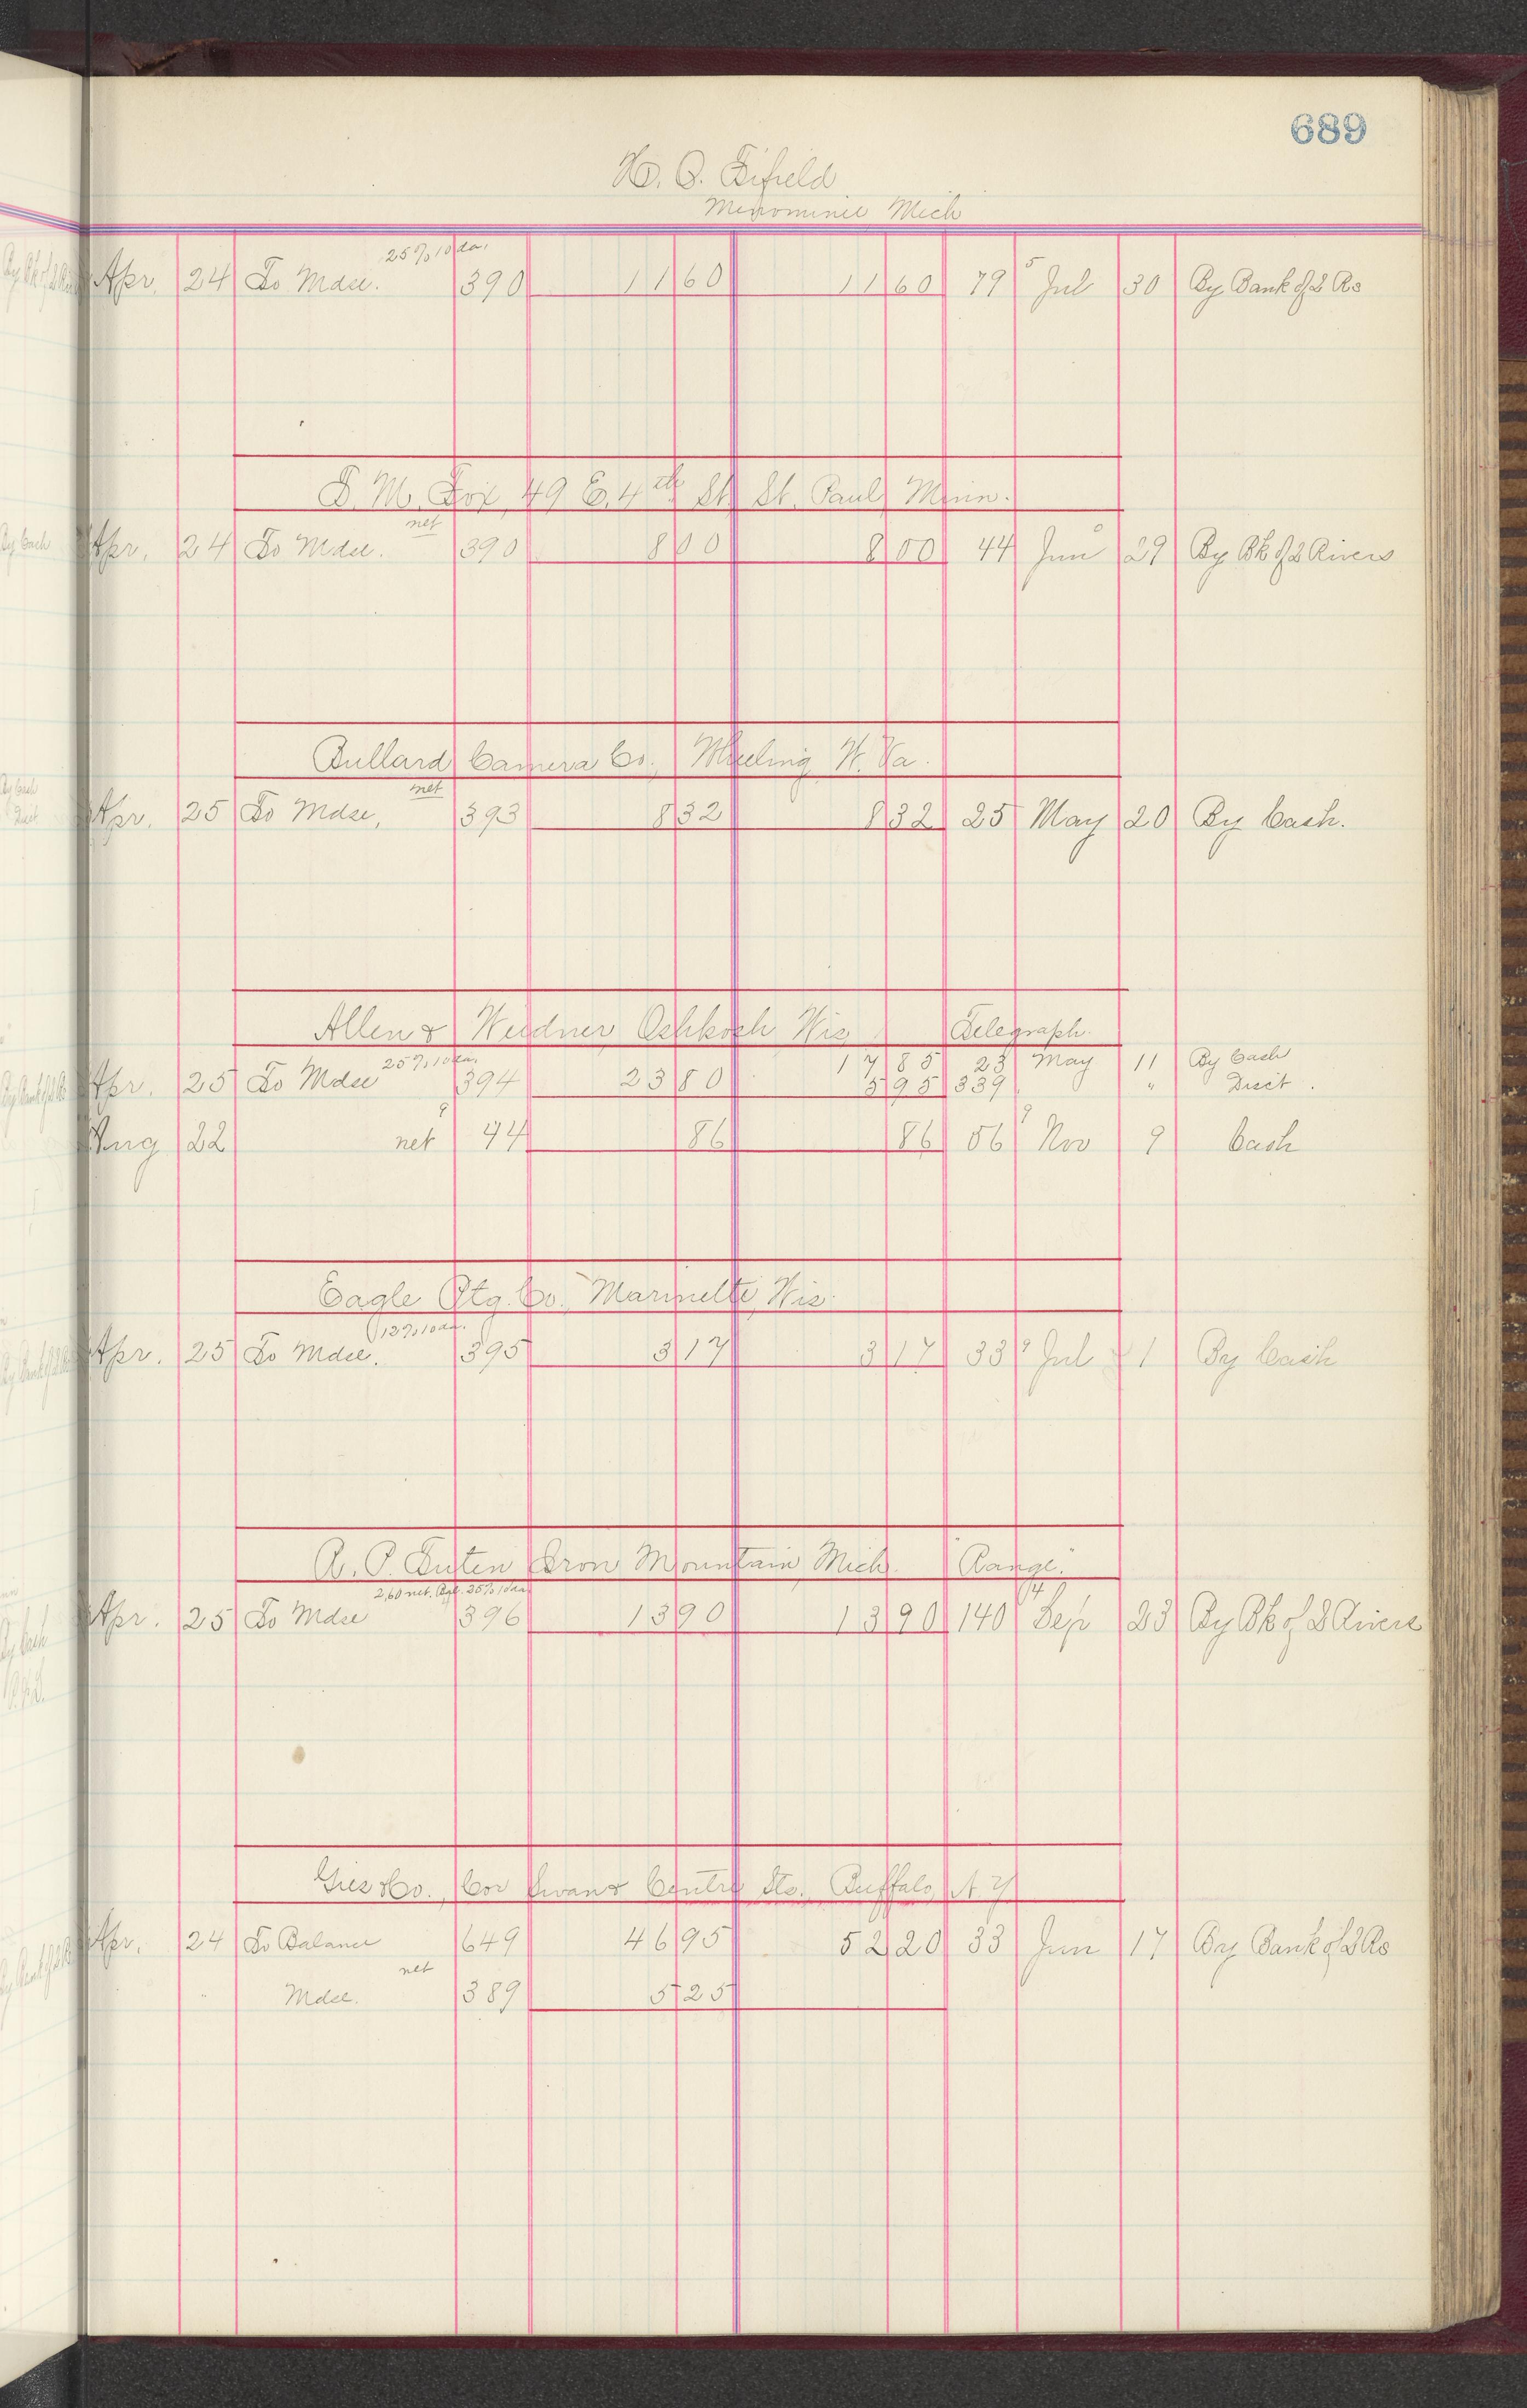 689
H. O. Fifield
Menominie Mich
25% 10 da.
Apr. 24 To Mdse. 390 11 60 11 60 79 5 Jul 30 By Bank of 2 Rs
F. M. Fox, 49 E. 4th St. St. Paul Minn.
net
Apr. 24 To Mdse. 390 8 00 8 00 44 0 Jun 29 By Bk of 2 Rivers
Bullard Camera Co., Wheeling W. Va.
net
Apr. 25 To Mdse, 393 8 32 8 32 25 May 20 By Cash.
Allen & Weidner Oshkosh Wis Telegraph.
25% 10 da 17 85 23 May 11 By Cash
Apr. 25 To Mdse 394 23 80 5 95 339 " Disct.
Aug 22 net 9 44 86 86 56 9 Nov 9 Cash
Eagle Ptg. Co., Marinette, Wis.
12% 10 da.
Apr. 25 To Mdse. 395 3 17 3 17 33 9 Jul 1 By Cash
R. P. Tuten Iron Mountain, Mich. "Range."
2.60 net. Bal. 25% 10 da
Apr. 25 To Mdse 396 13 90 13 90 140 14 Sep 23 By Bk of 2 Rivers
Gies & Co., Cor Swan & Centre Sts., Buffalo, N. Y.
Apr. 24 To Balance 649 46 95 52 20 33 Jun 17 By Bank of 2 Rs
net
" Mdse. 389 5 25